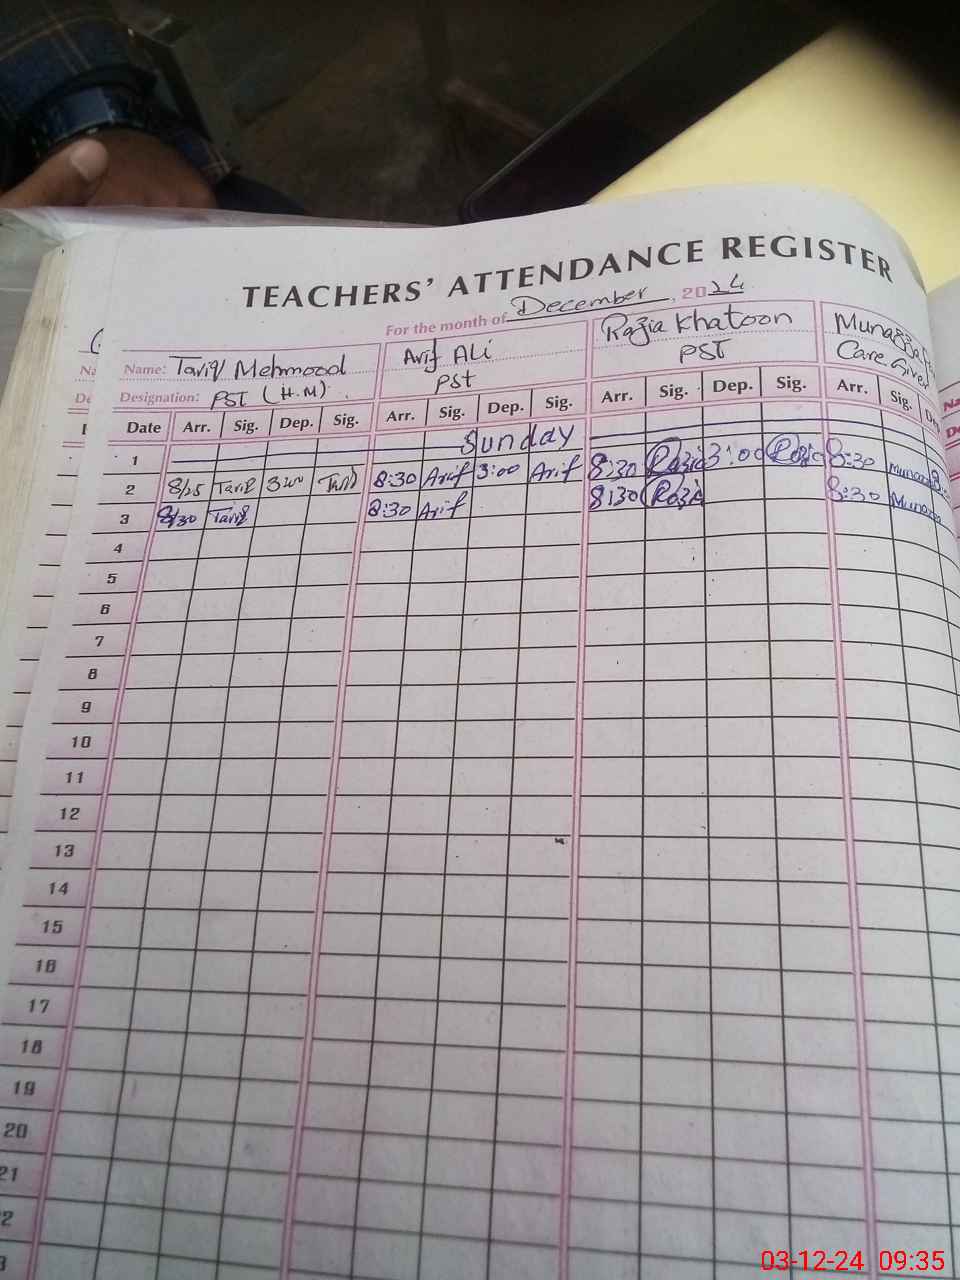 TEACHERS' ATTENDANCE REGISTER
For the month of December, 2024
Name: Tariq Mehmood Arif Ali Razia Khatoon
Designation: PST (H.M) PST PST Care Giver
Date Arr. Sig. Dep. Sig. Arr. Sig. Dep. Sig. Arr. Sig. Dep. Sig. Arr. Sig.
1 Sunday
2 8/25 Tariq 3:00 Tariq 8:30 Arif 3:00 Arif 8:30 Razia 3:00 Razia 8:30
3 8/30 Tariq 8:30 Arif 8:30 Razia 8:30
4
5
6
7
8
9
10
11
12
13
14
15
16
17
18
19
20
21
03-12-24 09:35